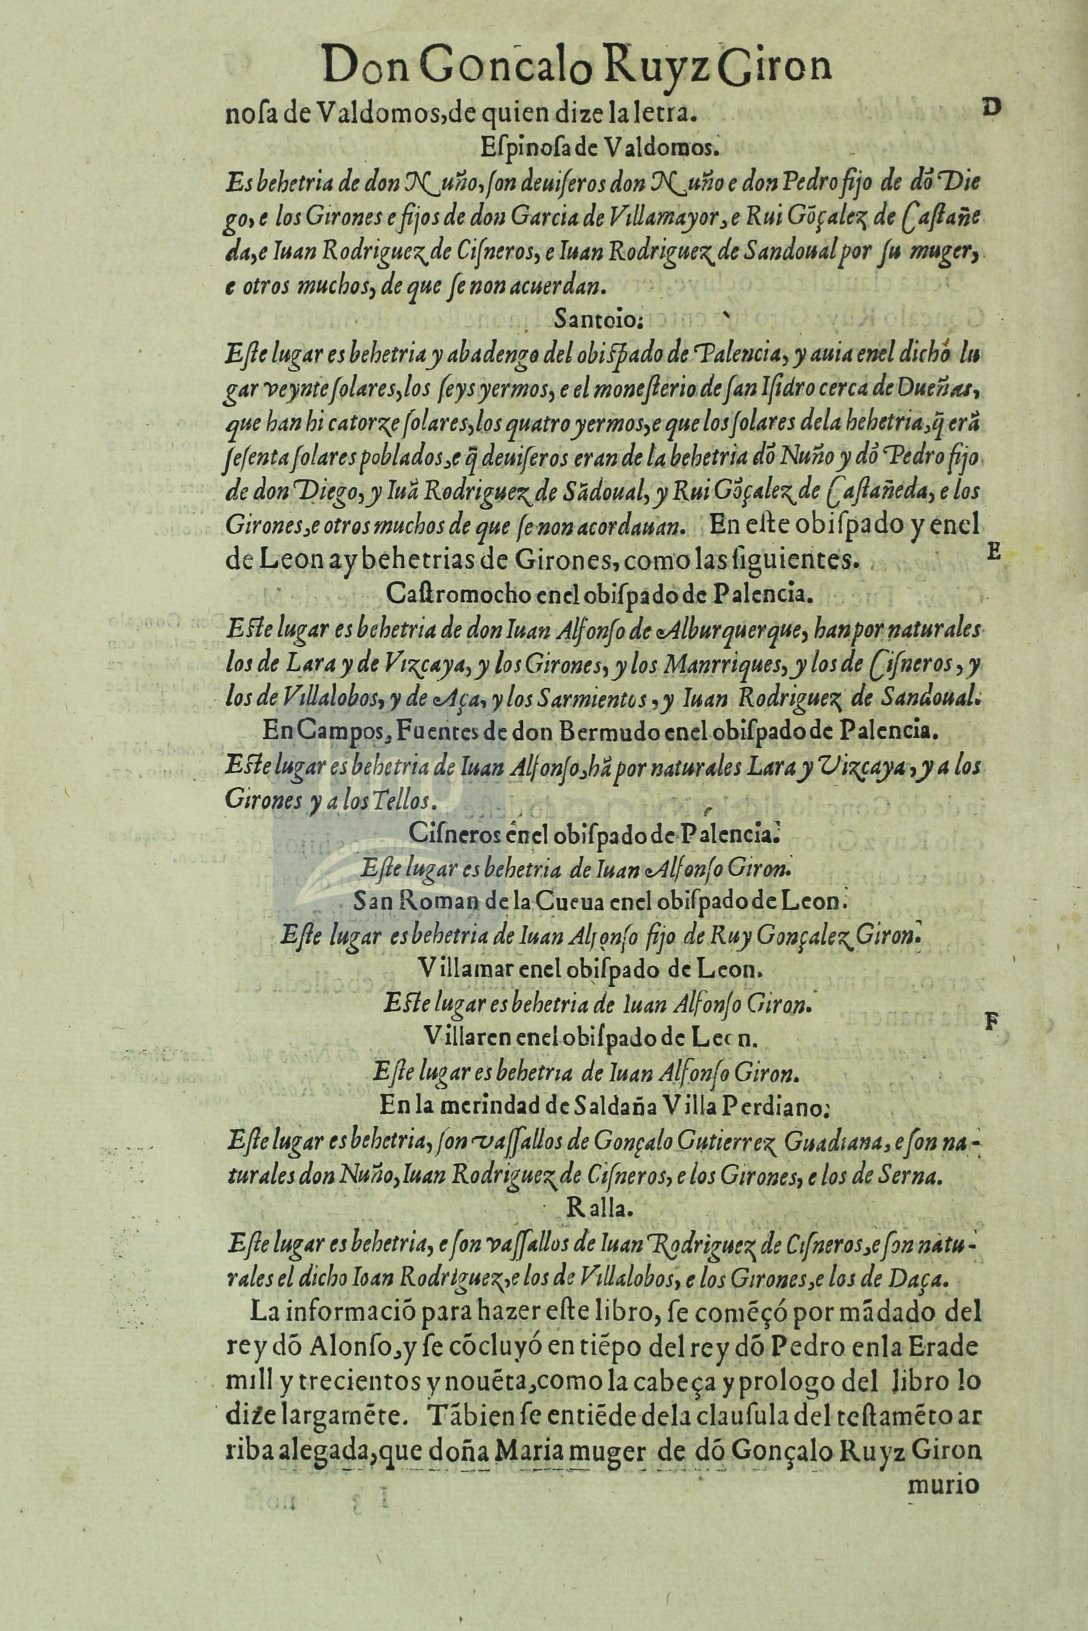 Don Goncalo Ruyz Giron
nosa de Valdomos, de quien dize la letra.
D
Espinosa de Valdomos.
Es behetria de don Nuño, son deuiseros don Nuño e don Pedro fijo de dõ Die
go, e los Girones e fijos de don Garcia de Villamayor, e Rui Gõçalez de Castañe
da, e Iuan Rodriguez de Cisneros, e Iuan Rodriguez de Sandoual por su muger,
e otros muchos, de que se non acuerdan.
Santoio:
Este lugar es behetria y abadengo del obispado de Palencia, y auia enel dicho lu
gar veynte solares, los seys yermos, e el monesterio de san Isidro cerca de Dueñas,
que han hi catorze solares, los quatro yermos, e que los solares dela hehetria, q̃ erã
sesenta solares poblados, e q̃ deuiseros eran de la behetria dõ Nuño y dõ Pedro fijo
de don Diego, y Iuã Rodriguez de Sãdoual, y Rui Gõçalez de Castañeda, e los
Girones, e otros muchos de que se non acordauan. En este obispado y enel
de Leon ay behetrias de Girones, como las siguientes.
E
Castromocho enel obispado de Palencia.
Este lugar es behetria de don Iuan Alfonso de Alburquerque, han por naturales
los de Lara y de Vizcaya, y los Girones, y los Manrriques, y los de Cisneros, y
los de Villalobos, y de Aça, y los Sarmientos, y Iuan Rodriguez de Sandoual.
En Campos, Fuentes de don Bermudo enel obispado de Palencia.
Este lugar es behetria de Iuan Alfonso, hã por naturales Lara y Vizcaya, y a los
Girones y a los Tellos.
Cisneros enel obispado de Palencia.
Este lugar es behetria de Iuan Alfonso Giron.
San Roman de la Cueua enel obispado de Leon.
Este lugar es behetria de Iuan Alfonso fijo de Ruy Gonçalez Giron.
Villamar enel obispado de Leon.
Este lugar es behetria de Iuan Alfonso Giron.
F
Villaren enel obispado de Leon.
Este lugar es behetria de Iuan Alfonso Giron.
En la merindad de Saldaña Villa Perdiano:
Este lugar es behetria, son vassallos de Gonçalo Gutierrez Guadiana, e son na-
turales don Nuño, Iuan Rodriguez de Cisneros, e los Girones, e los de Serna.
Ralla.
Este lugar es behetria, e son vassallos de Iuan Rodriguez de Cisneros, e son natu-
rales el dicho Ioan Rodriguez, e los de Villalobos, e los Girones, e los de Daça.
La informaciõ para hazer este libro, se comẽçó por mãdado del
rey dõ Alonso, y se cõcluyó en tiẽpo del rey dõ Pedro enla Era de
mill y trecientos y nouẽta, como la cabeça y prologo del libro lo
dize largamẽte. Tãbien se entiẽde dela clausula del testamẽto ar
riba alegada, que doña Maria muger de dõ Gonçalo Ruyz Giron
murio